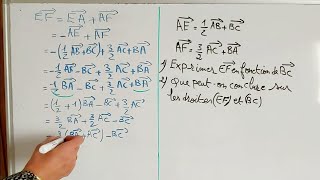 EF = EA + AF
= -AE + AF
= -(1/2 AB + BC) + 3/2 AC + BA
= -1/2 AB - BC + 3/2 AC + BA
= 1/2 BA - BC + 3/2 AC + BA
= (1/2 + 1) BA - BC + 3/2 AC
= 3/2 BA + 3/2 AC - BC
= 3/2 (BA + AC) - BC
AE = 1/2 AB + BC
AF = 3/2 AC + BA
1) Exprimer EF en fonction de BC
2) Que peut-on conclure sur
les droites (EF) et (BC)